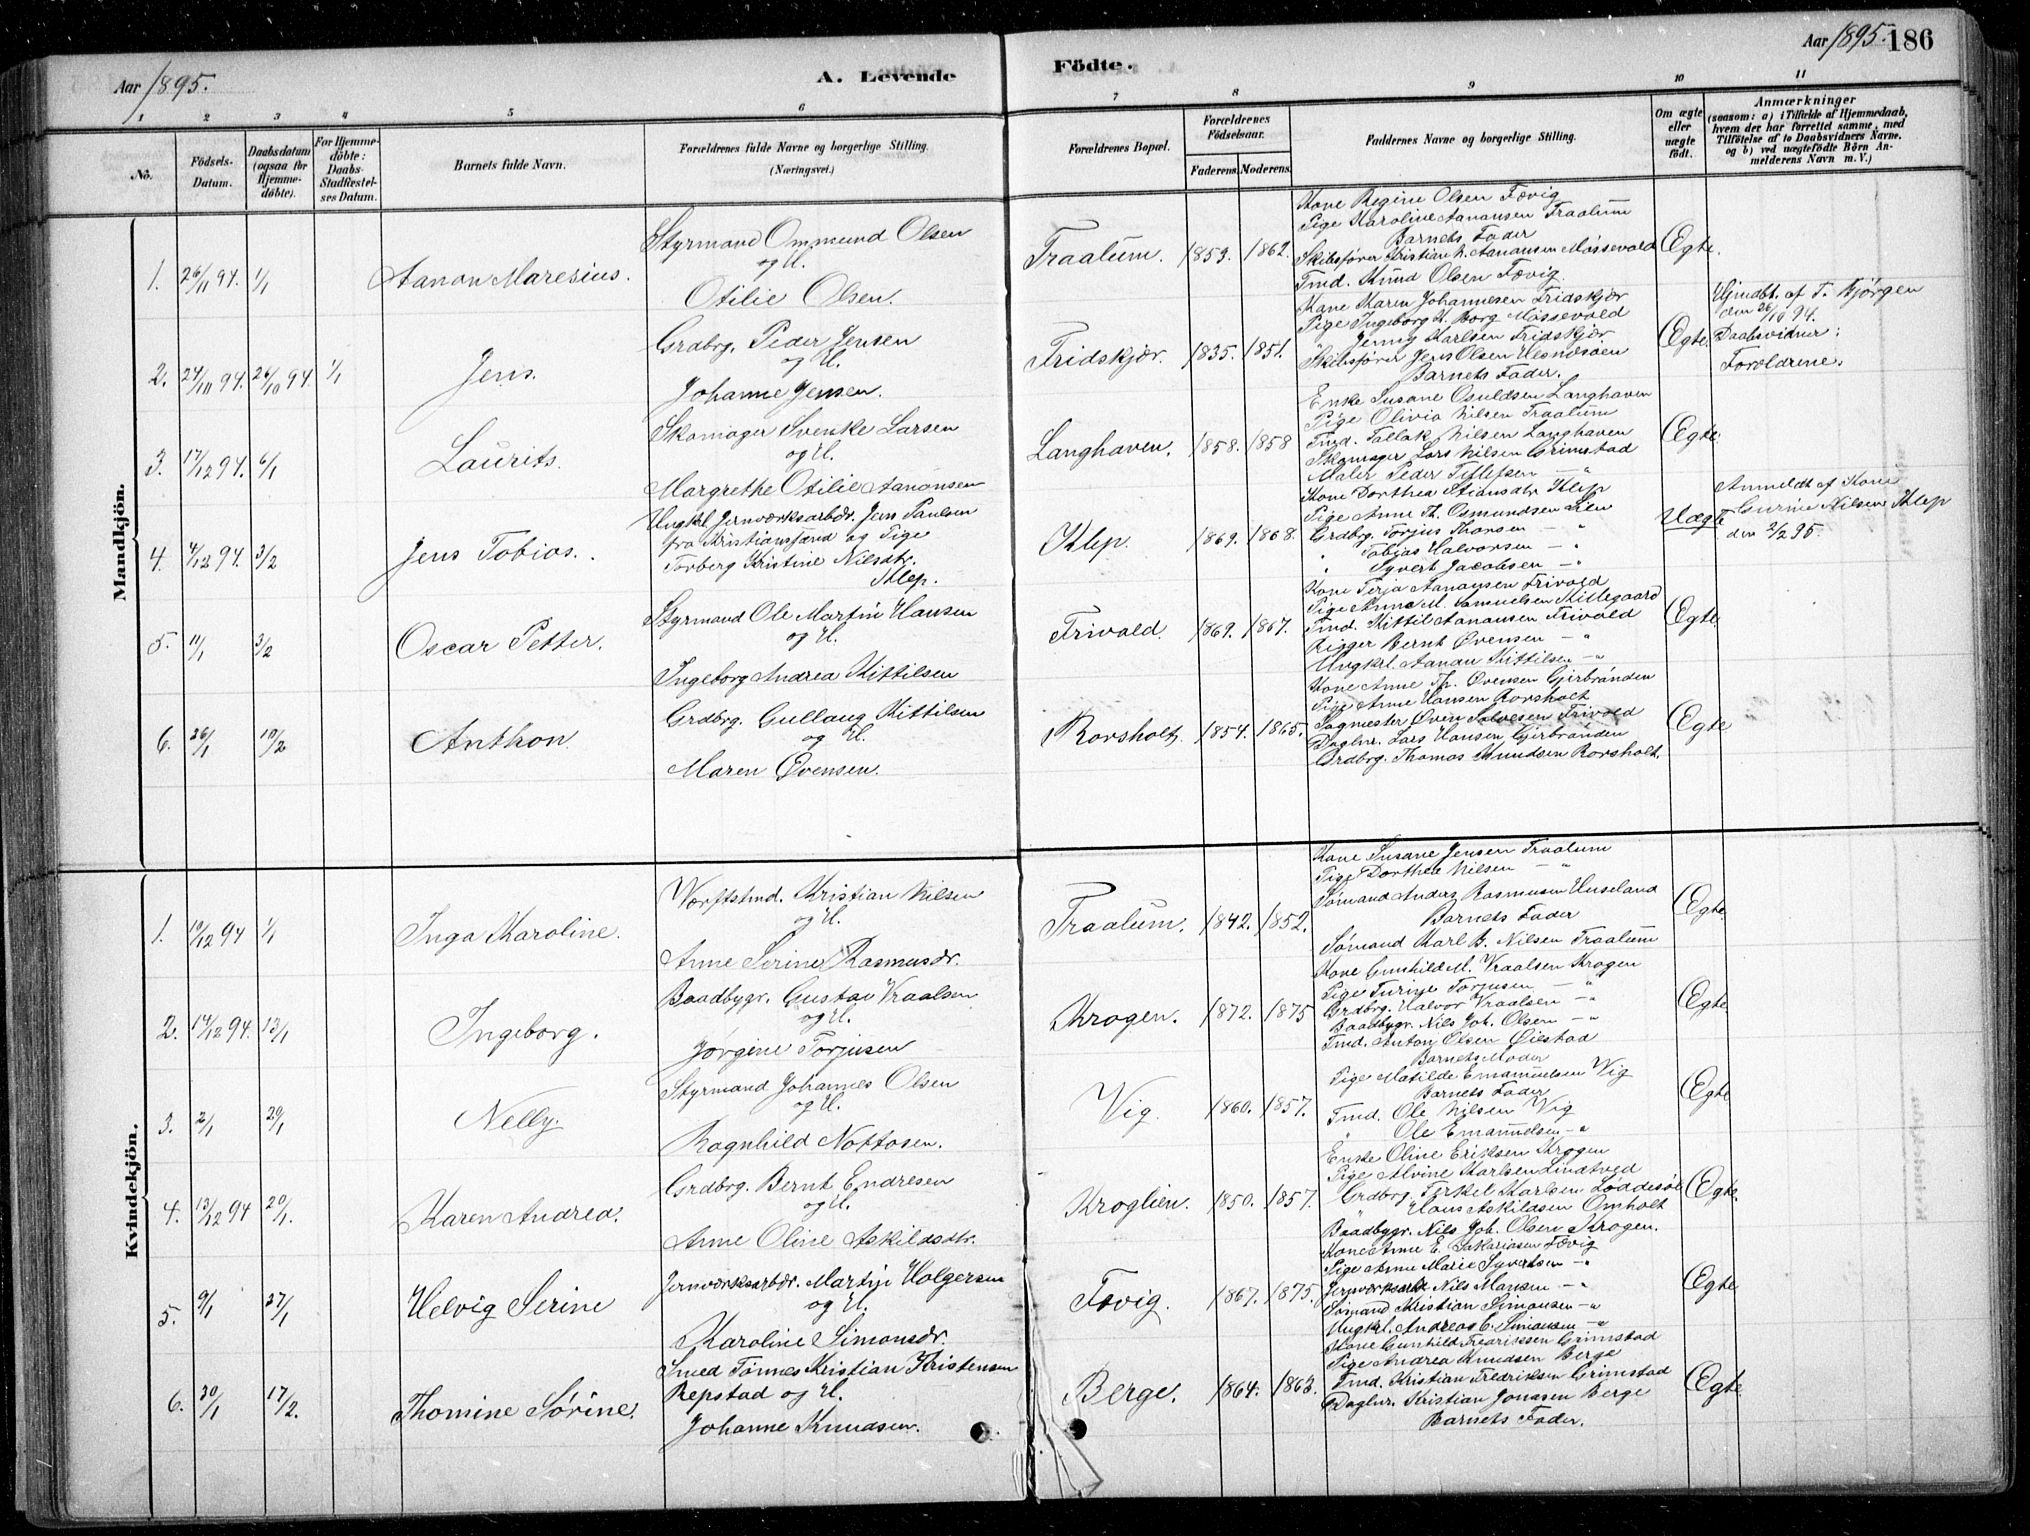 Aar 1895.
A. Levende
Födte.
Aar 1895. 186
1 2 3 4 5 6 7 8 9 10 11
No.
Födsels-Datum.
Daabsdatum (ogsaa for Hjemmedöbte).
For Hjemmedöbte: Daabs-Stadfæstelses Datum.
Barnets fulde Navn.
Forældrenes fulde Navne og borgerlige Stilling. (Næringsvei.)
Forældrenes Bopæl.
Forældrenes Födselsaar.
Faderens. Moderens.
Faddernes Navne og borgerlige Stilling.
Om ægte eller uægte födt.
Anmærkninger (saasom: a) i Tilfælde af Hjemmedaab, hvem der har forrettet samme, med Tilföielse af to Daabsvidners Navne. og b) ved uægtefödte Börn Anmelderens Navn m. V.)
Mandkjön.
1. 26/11 94. 1/1
Aanon Maresius.
Styrmand Ommund Olsen
og H.
Otilie Olsen.
Traalum. 1853. 1862.
Kone Regine Olsen Fævig
Pige Karoline Aanonsen Traalum
Barnets Fader
Skibsfører Kristian N. Aanonsen Mössevold
Tmd. Knud Olsen Fævig.
Egte.
2. 24/10 94. 26/10 94. 1/1
Jens.
Grdbrg. Peder Jensen
og H.
Johanne Jensen.
Fridskjær. 1835. 1851.
Kone Karen Johannesen Fridskjær
Pige Ingeborg K. Borg Mössevold
" Jenny Karlsen Fridskjær.
Skibsfører Jens Olsen Hesnesöen
Barnets Fader.
Egte.
Hjmdbt. af T. Bjørgen
den 26/10 94.
Daabsvidner:
Forældrene.
3. 17/12 94. 6/1
Laurits.
Skomager Svenke Larsen
og H.
Margrethe Otilie Aanonsen
Langhaven. 1858. 1858
Enke Susane Osuldsen Langhaven
Pige Olivia Nilsen Traalum
Tmd. Tallak Nilsen Langhaven
Skomager Lars Nilsen Grimstad
Maler Peder Tellefsen — "
Egte.
4. 4/12 94. 3/2
Jens Tobias.
Ungkl. Jernværksarbdr. Jens Paulsen
fra Kristianssand og Pige
Torberg Kristine Nilsdtr.
Klep.
Klep. 1869. 1868.
Kone Dorthea Stiansdtr. Klep
Pige Anne Th. Osmundsen Lien
Grdbrg. Torjus Thorsen "
" Tobias Halvorsen — "
" Syvert Jacobsen — "
Uægte
Anmeldt af Kone
Gurine Nilsen Klep
den 2/2 95.
5. 11/1 3/2
Oscar Petter.
Styrmand Ole Martin Hansen
og H.
Ingeborg Andrea Kittilsen
Frivold. 1869. 1867.
Kone Terja Aanonsen Frivold
Pige Anne M. Samuelsen Killegaard
Tmd. Kittil Aanonsen Frivold
Rigger Bernt Øvensen — "
Ungkrl. Aanon Kittilsen — "
Egte.
6. 26/1 10/2
Anthon.
Grdbrg. Gullaug Kittilsen
og H.
Maren Øvensen.
Rorsholt. 1854. 1865.
Kone Anne Th. Øvensen Girbrønden
Pige Anne Hansen Rorsholt
Sagmester Øven Salvesen Frivold
Daglnr. Lars Hansen Girbrønden
Grdbrg. Thomas Knudsen Rorsholt.
Egte
Kvindekjön.
1. 10/12 94 1/1
Inga Karoline.
Værftstmd. Kristian Nilsen
og H.
Anne Serine Rasmusdr.
Traalum. 1842. 1852.
Kone Susane Jensen Traalum
Pige Dorthea Nilsen — "
Sømand Anders Rasmusen Huseland
Barnets Fader
Sømand Karl B. Nilsen Traalum
Egte.
2. 14/12 94. 13/1
Ingeborg.
Baadbygr. Gustav Vraalsen
og H.
Jorgine Torjusen
Krogen. 1872. 1875
Kone Gunhild M. Vraalsen Krogen
Pige Turine Torjusen — "
Grdbrg. Halvor Vraalsen — "
Baadbygr. Nils Joh. Olsen — "
Tmd. Anton Olsen Øiestad
Egte
3. 2/1 20/1
Nelly.
Styrmand Johannes Olsen
og H.
Ragnhild Nottosen.
Vig. 1860. 1857.
Barnets Moder
Pige Matilde Emanuelsen Vig
Barnets Fader
Tmd. Ole Nilsen Vig
" Ole Emanuelsen — "
Egte
4. 13/12 94 20/1.
Karen Andrea.
Grdbrg. Bernt Endresen
og H.
Anne Oline Askildsdtr.
Kroglien. 1850. 1857.
Enke Oline Eriksen Krogen
Pige Alvine Karlsen Lindtved
Grdbrg. Terkel Karlsen Løddesøl
" Hans Askildsen Omholt
Baadbygr. Nils Joh. Olsen Krogen.
Egte.
5. 9/1 27/1
Helvig Serine
Jernværksarbdr. Martin Holgersen
og H.
Karoline Simonsdr.
Fævig. 1867. 1875.
Kone Anne E. Sakariasen Fævig
Pige Anne Marie Syvertsen — "
Jernværksarb. Nils Monsen — "
Sømand Kristian Simonsen — "
Ungkl. Andreas C. Simonsen — "
Egte
6. 30/1 17/2.
Thomine Sørine.
Smed Tönnes Kristian Kristensen
Repstad og H.
Johanne Knudsen.
Berge. 1864. 1863.
Kone Gunhild Fredriksen Grimstad
Pige Andrea Knudsen Berge
Tmd. Kristian Fredriksen Grimstad
Daglnr. Kristian Jonassen Berge
Barnets Fader.
Egte